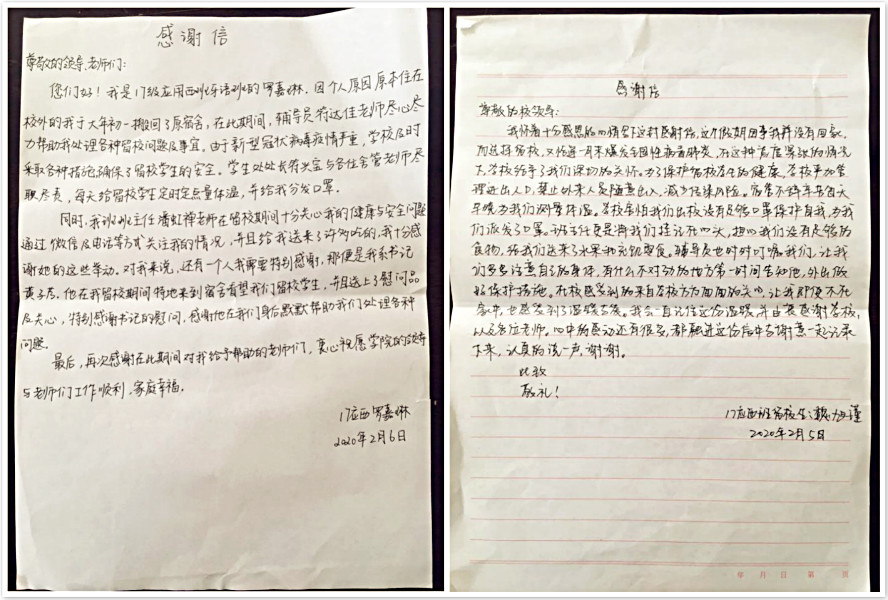 感谢信
尊敬的领导、老师们：
您们好！我是17级应用西班牙语班的罗嘉琳。因个人原因原本住在
校外的我于大年初一搬回了原宿舍，在此期间，辅导员符达佳老师尽心尽
力帮助我处理各种留校问题及事宜。由于新型冠状病毒疫情严重，学校及时
采取各种措施确保了留校学生的安全。学生处处长符 与各住舍管老师尽
职尽责，每天给留校学生定时定点量体温，并给我分发口罩。
同时，我班班主任潘虹 老师在留校期间十分关心我的健康与安全问题
通过微信及电话等方式关注我的情况，并且给我送来了许多吃的，我十分感
谢她的这些举动。对我来说，还有一个人我需要特别感谢，那便是我系书记
黄子 。他在我留校期间特地来到宿舍看望我们留校学生，并且送上了慰问品
及关心，特别感谢书记的慰问，感谢他在我们身后默默帮助我们处理各种
问题。
最后，再次感谢在此期间对我给予帮助的老师们，衷心祝愿学院的领导
与老师们工作顺利，家庭幸福。
17应西罗嘉琳
2020年2月6日
感谢信
尊敬的校领导：
我怀着十分感恩的心情写这封感谢信，这个假期因事我并没有回家，
而选择留校，又恰逢一月末爆发全国性病毒肺炎，在这种若度紧张的情况
下，学校给予了我们深切的关怀。为了保护留校学生的健康，学校严加管
理进出人口，禁止外来人员随意出入，减少传染风险。宿管不辞辛苦每天
早晚为我们测量体温。学校害怕我们出校没有足够口罩保护自我，为我
们派发了口罩。班主任更是将我们挂记在心头，担心我们没有足够的
食物，给我们送来了水果和充饥零食。辅导员也时时叮嘱我们，让我
们多多注意自己的身体，有什么不对劲的地方第一时间告知他，外出做
好保护措施。在校感受到的来自学校方方面面的关心，让我即便不在
家中，也感受到了温暖万分。我会一直记住这份温暖，并由衷感谢学校，
以及各位老师。心中的感动还有很多，都融进这份信中与谢意一起记录
下来，认真的说一声，谢谢。
此致
敬礼！
17应西班留校生：魏旭瑾
2020年2月5日
年 月 日 第 页